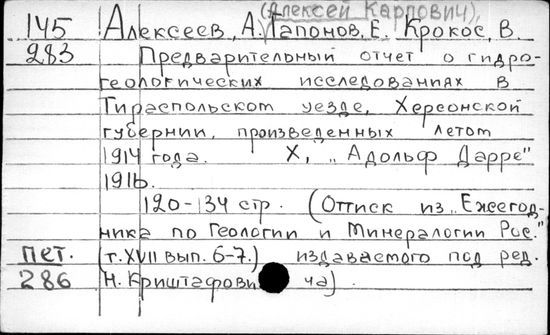 (Алексей Карпович),
145 Алексеев, А. Гапонов, Е. Крокос, В.
283 Предварительный отчет о гидро-
геологических исследованиях в
Тираспольском уезде, Херсонской
губернии, произведенных летом
1914 года. Х, „Адольф Дарре"
1916.
120-134 стр. (Оттиск из „Ежегод-
ника по Геологии и Минералогии Рос."
пет. (т. XVII вып. 6-7.) издаваемого под ред.
286 Н. Криштафови ча).